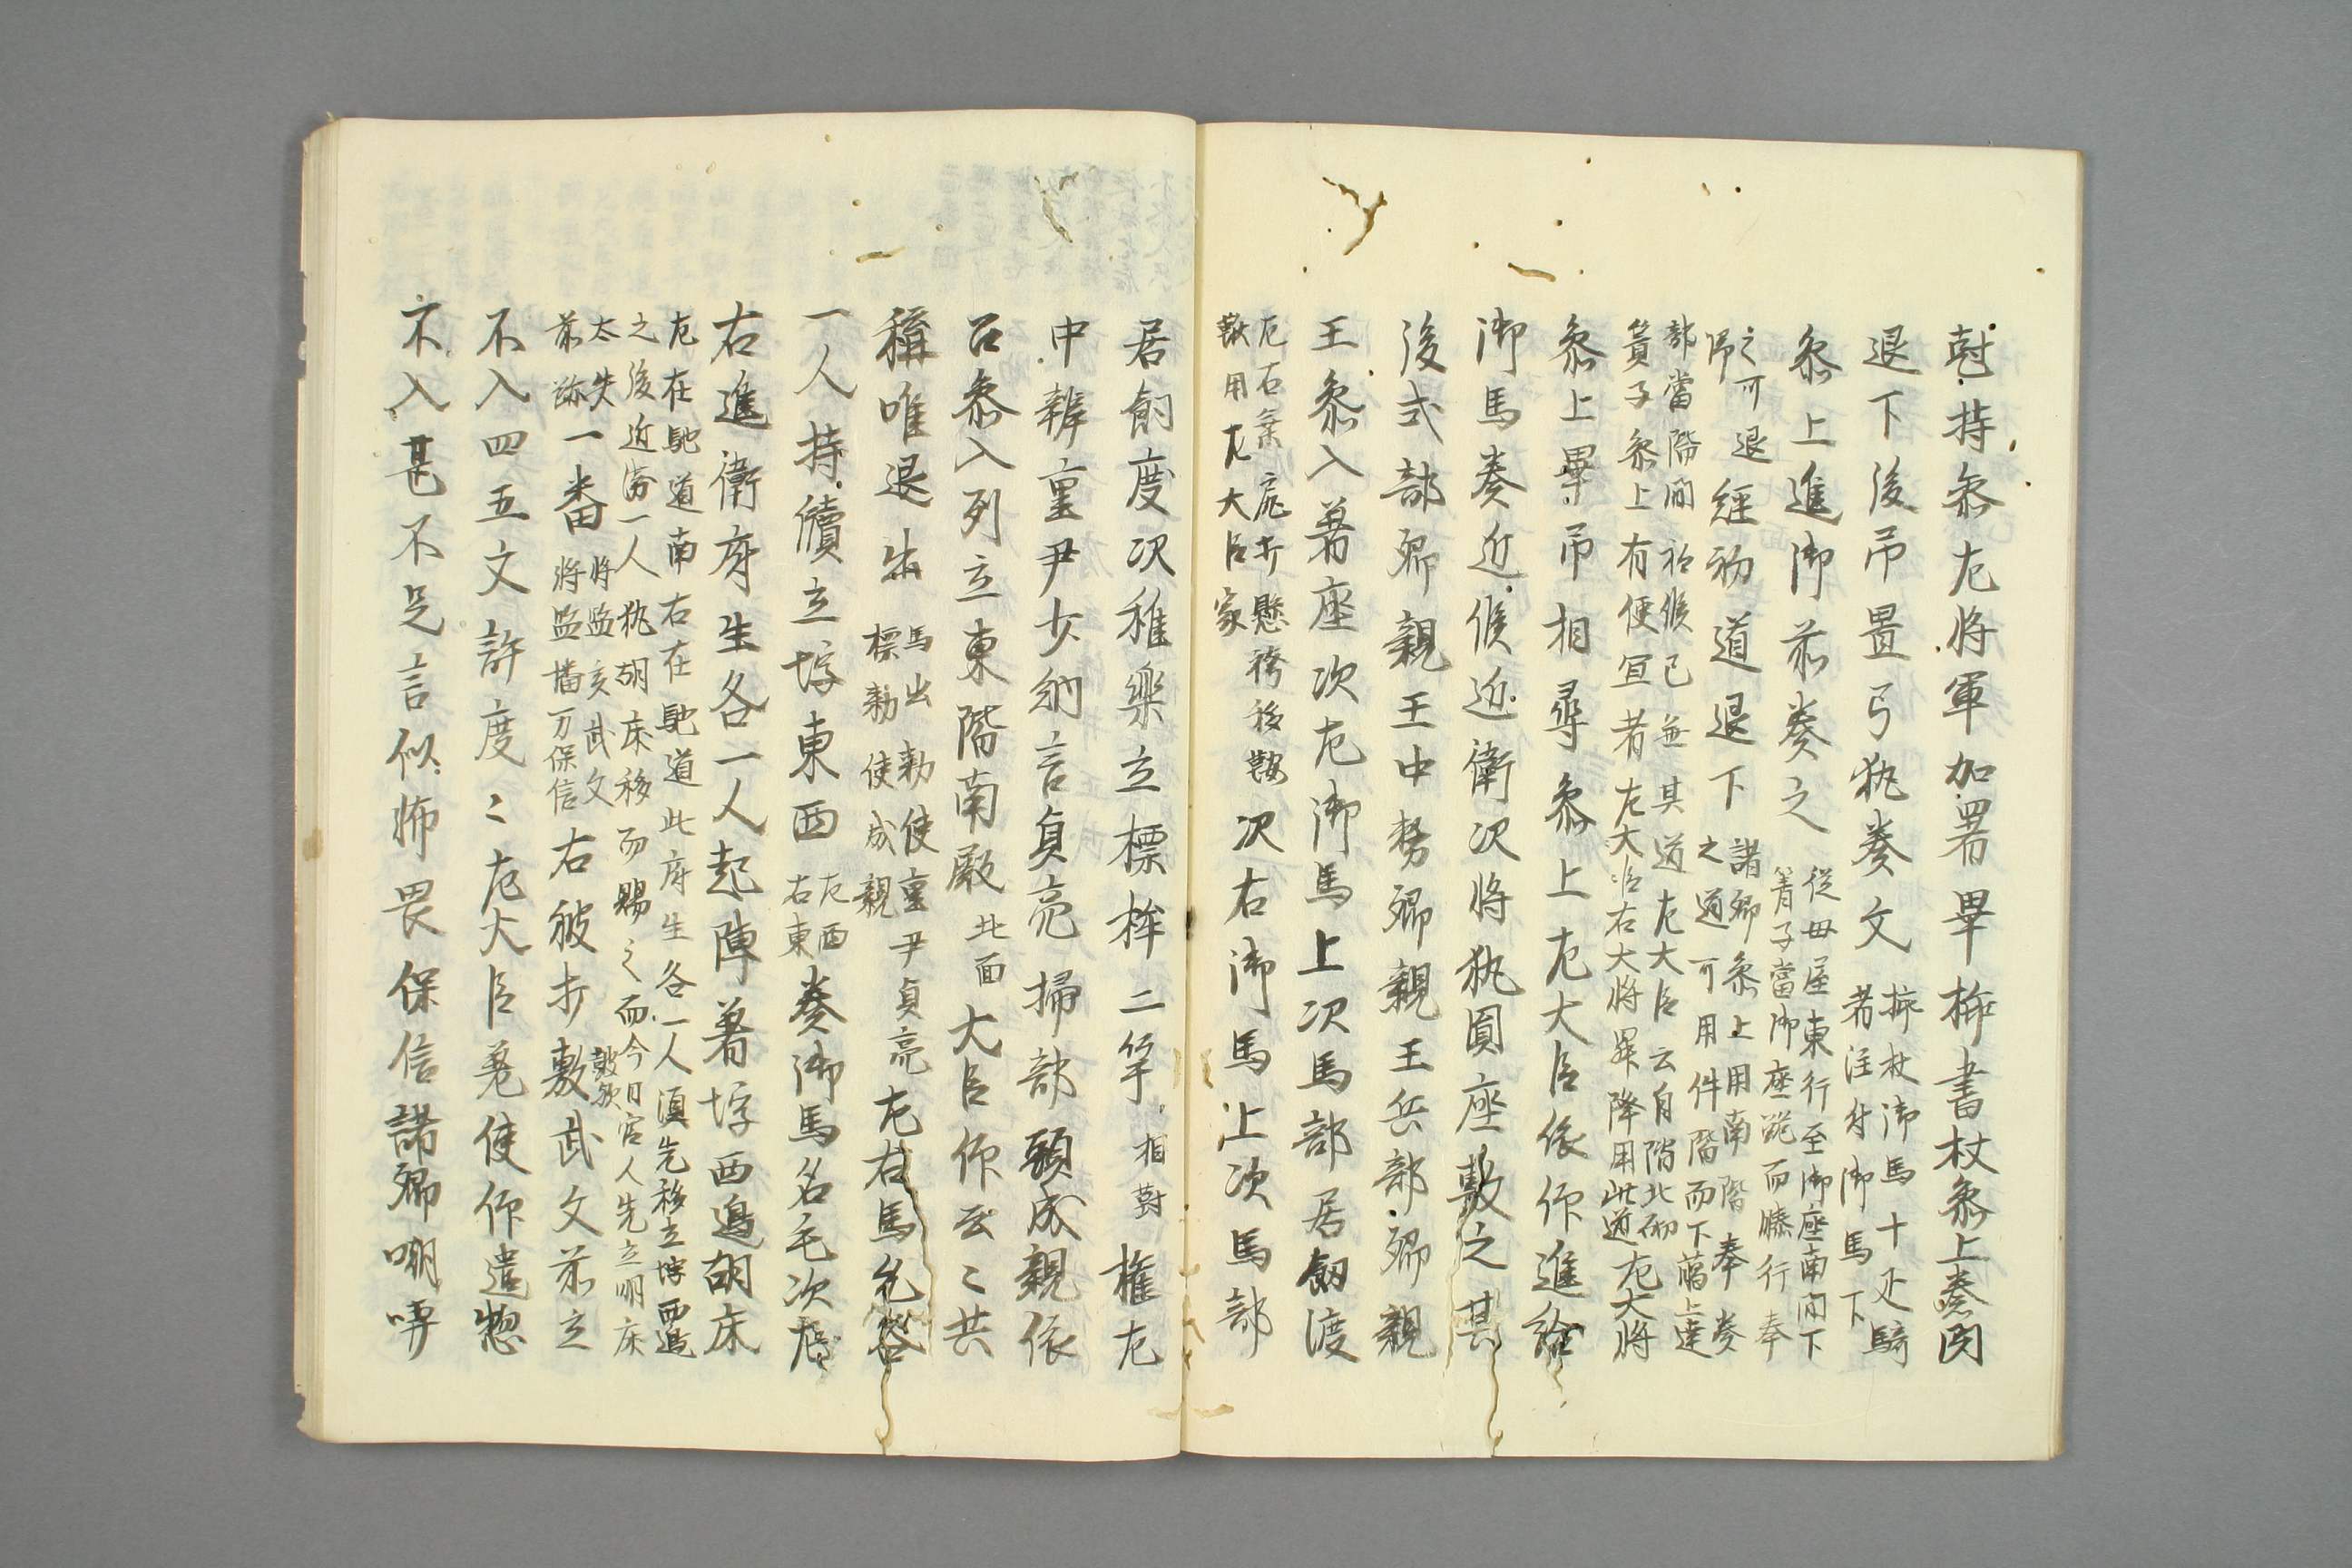 尅持参左将軍加署畢挿書杖参上奏間
退下後帋置弓執奏文
挿杖御馬十疋騎
者注付御馬下
参上進御前奏之
従母屋東行至御座南間下
簀子當御座跪而膝行奉
之可退
帰
経初道退下
諸卿参上用南階奉奏
之道可用件階而下萬上達
部當階間祗候已無其道左大臣云自階北砌
簀子参上有便宜者左大将右大将畢降用此道左大将
参上畢帋相尋参上左大臣依仰進給
御馬奏近候近衛次将執圓座敷之其
後式部卿親王中務卿親王兵部卿親
王参入着座次左御馬上次馬部居劔渡
左右乗尻打懸袴移鞍
歟用左大臣家
次右御馬上次馬部
居飼度次稚楽立標桙二竿
相對
権左
中辨重尹少納言貞亮掃部頭成親依
召参入列立東階南廏
北面
大臣仰云〻共
稱唯退出
馬出勅使重尹貞亮
標勅使成親
左右馬允各
一人持牘立埒東西
左西
右東
奏御馬名毛次左
右進衛府生各一人起陣着埒西邊胡床
左在馳道南右在馳道北府生各一人須先移立埒西邊
之後近衛一人執胡床移而賜之而今日官人先立明床
太失
前跡
一番
将監亥武文
将監播万保信
右被打敷武文前立
不入四五文許度〻左大臣差使仰遣惣
不入甚不足言似怖畏保信諸卿嘲哢